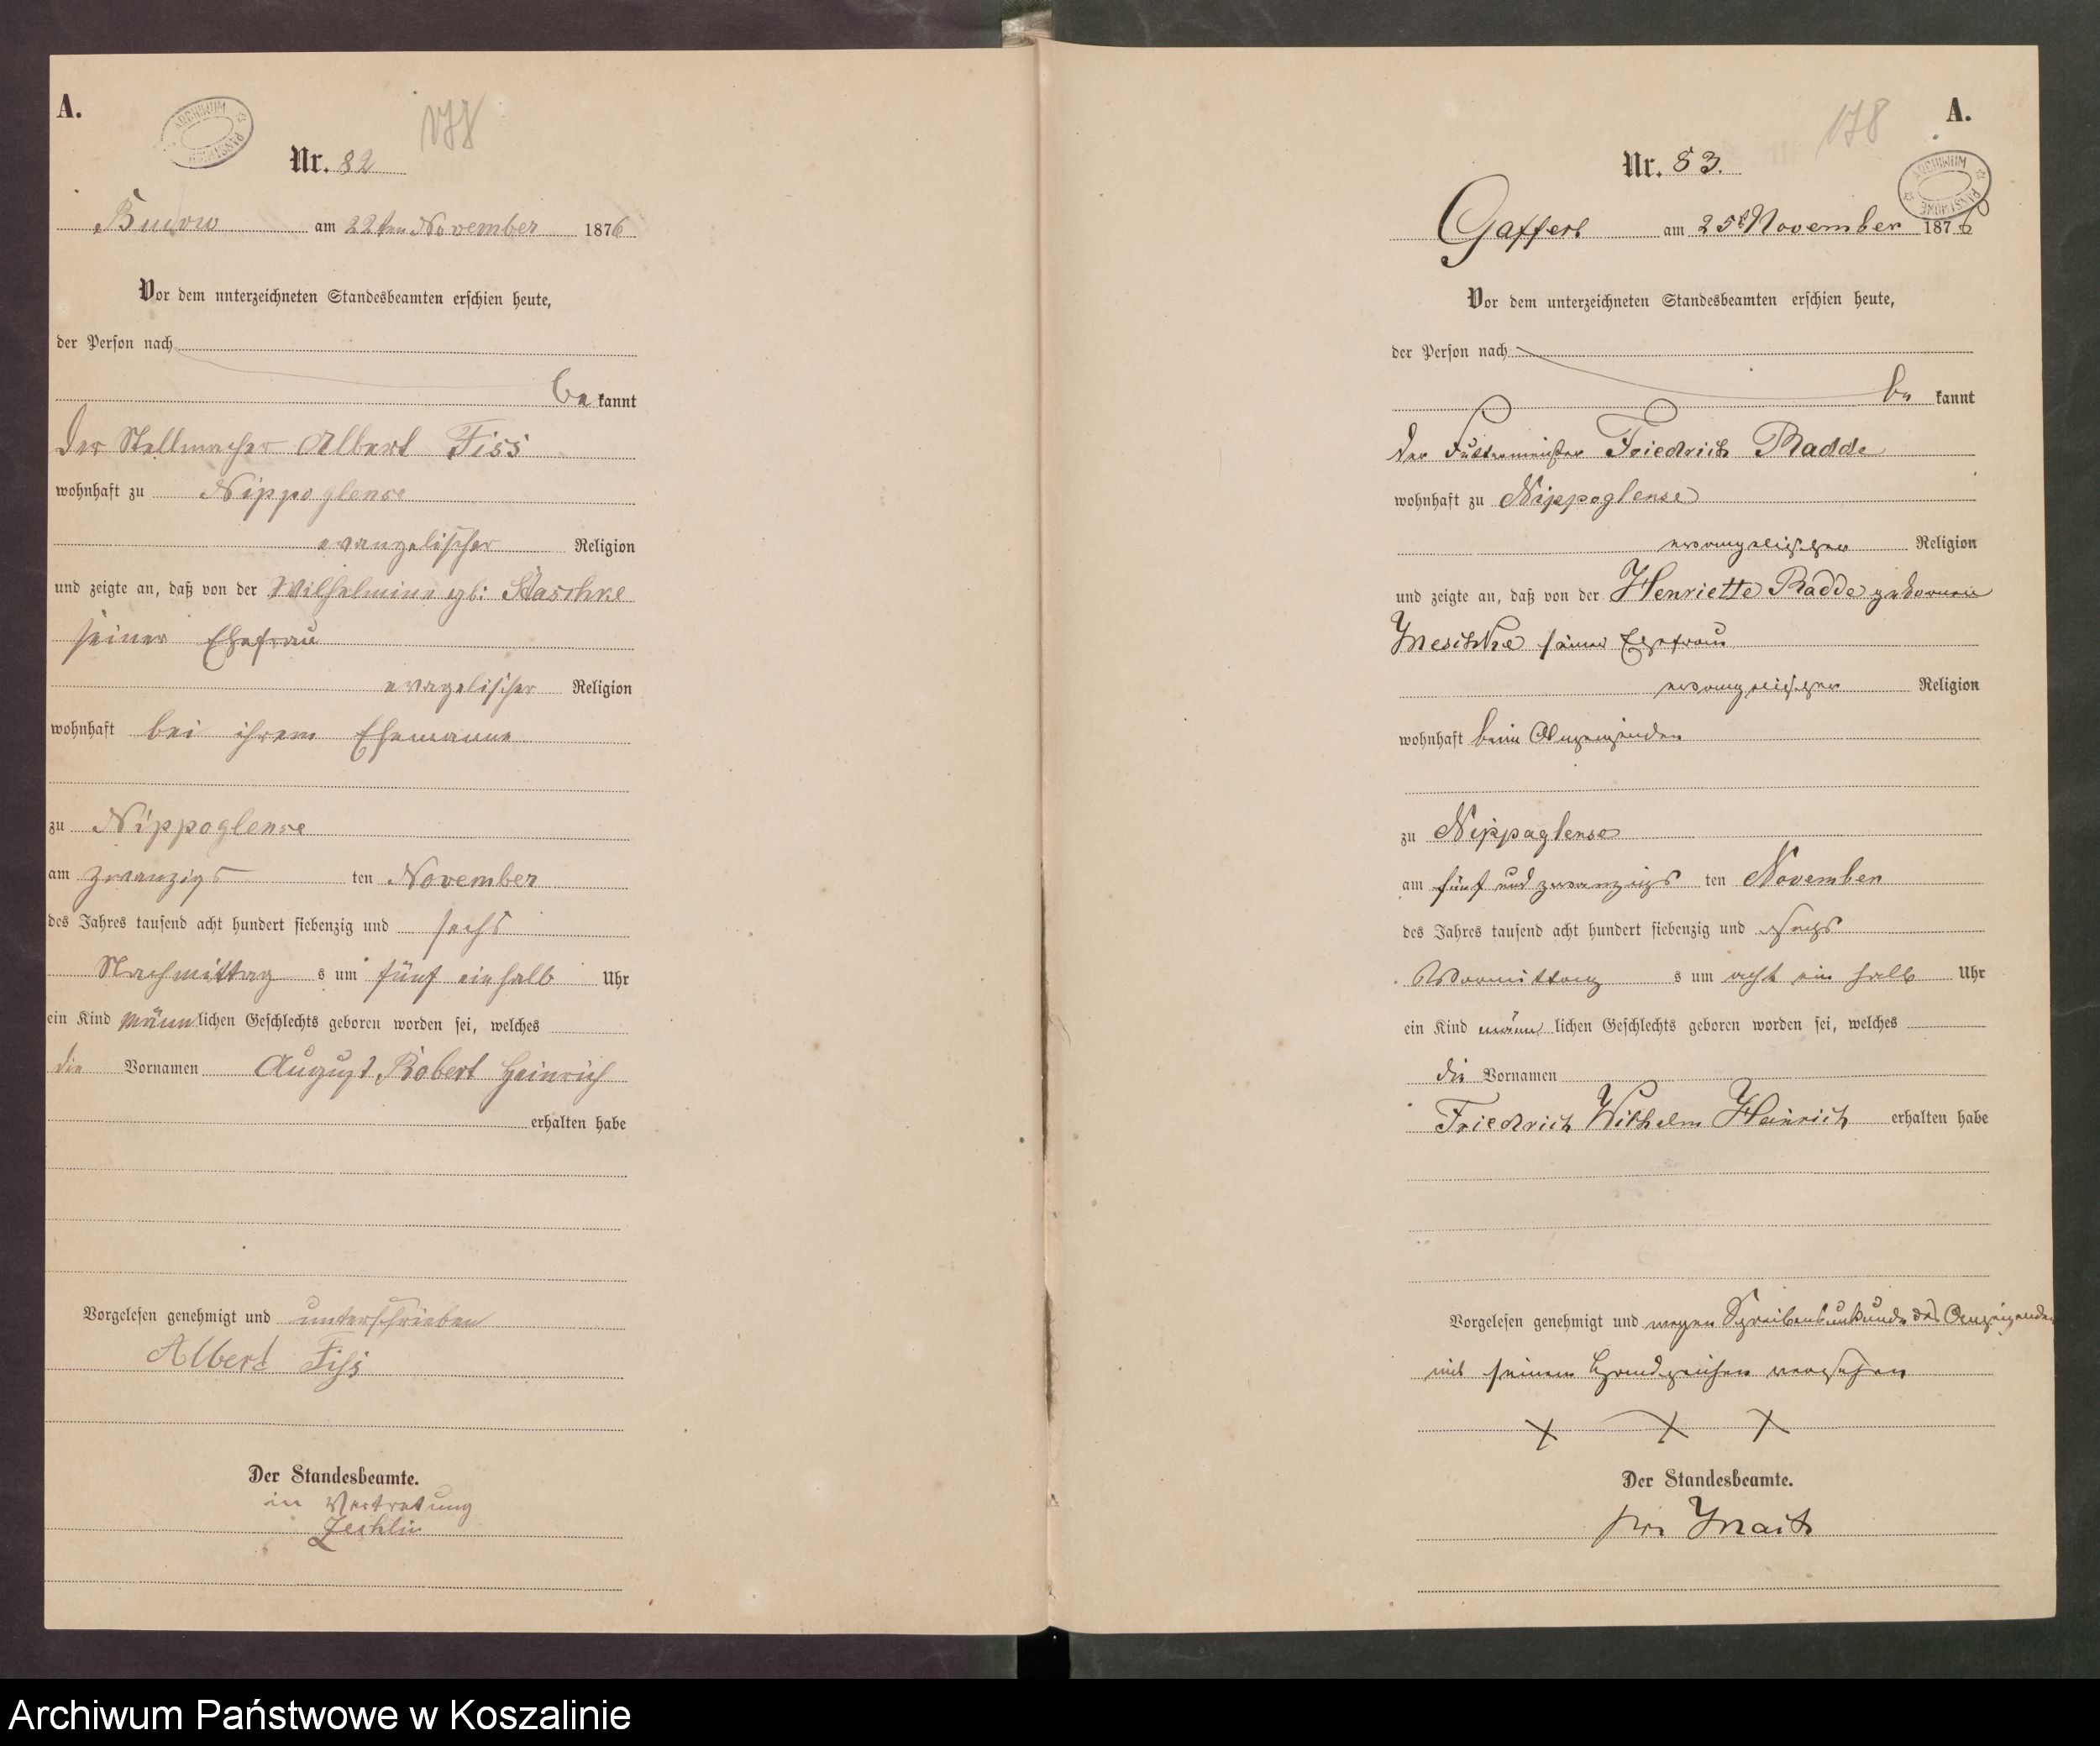 A.
ARCHIWUM PAŃSTWOWE
178
Nr. 82
Bukow am 22ten November 1876
Vor dem unterzeichneten Standesbeamten erschien heute,
der Person nach
be kannt
der Stellmacher Albert Fiss
wohnhaft zu Nippoglense
evangelischer Religion
und zeigte an, daß von der Wilhelmine geb: Staschke
seiner Ehefrau
evagelischer Religion
wohnhaft bei ihrem Ehemanne
zu Nippoglense
am zwanzigs ten November
des Jahres tausend acht hundert siebenzig und sechs
Nachmittag s um fünf einhalb Uhr
ein Kind männ lichen Geschlechts geboren worden sei, welches
die Vornamen August Robert Heinrich
erhalten habe
Vorgelesen genehmigt und unterschrieben
Albert Fiss
Der Standesbeamte.
in Vertretung
Zechlin
178
A.
ARCHIWUM PAŃSTWOWE
Nr. 83.
Gaffert am 25t November 1876
Vor dem unterzeichneten Standesbeamten erschien heute,
der Person nach
be kannt
der Futtermeister Friedrich Radde
wohnhaft zu Nippoglense
evangelischer Religion
und zeigte an, daß von der Henriette Radde geborene
Meschke seiner Ehefrau
evangelischer Religion
wohnhaft beim Anzeigenden
zu Nippaglense
am fünf und zwanzigs ten November
des Jahres tausend acht hundert siebenzig und sechs
Vormittag s um acht ein halb Uhr
ein Kind männ lichen Geschlechts geboren worden sei, welches
die Vornamen
Friedrich Wilhelm Heinrich erhalten habe
Vorgelesen genehmigt und wegen Schreibensunkunde des Anzeigenden
mit seinem Handzeichen versehen
x x x
Der Standesbeamte.
Archiwum Państwowe w Koszalinie